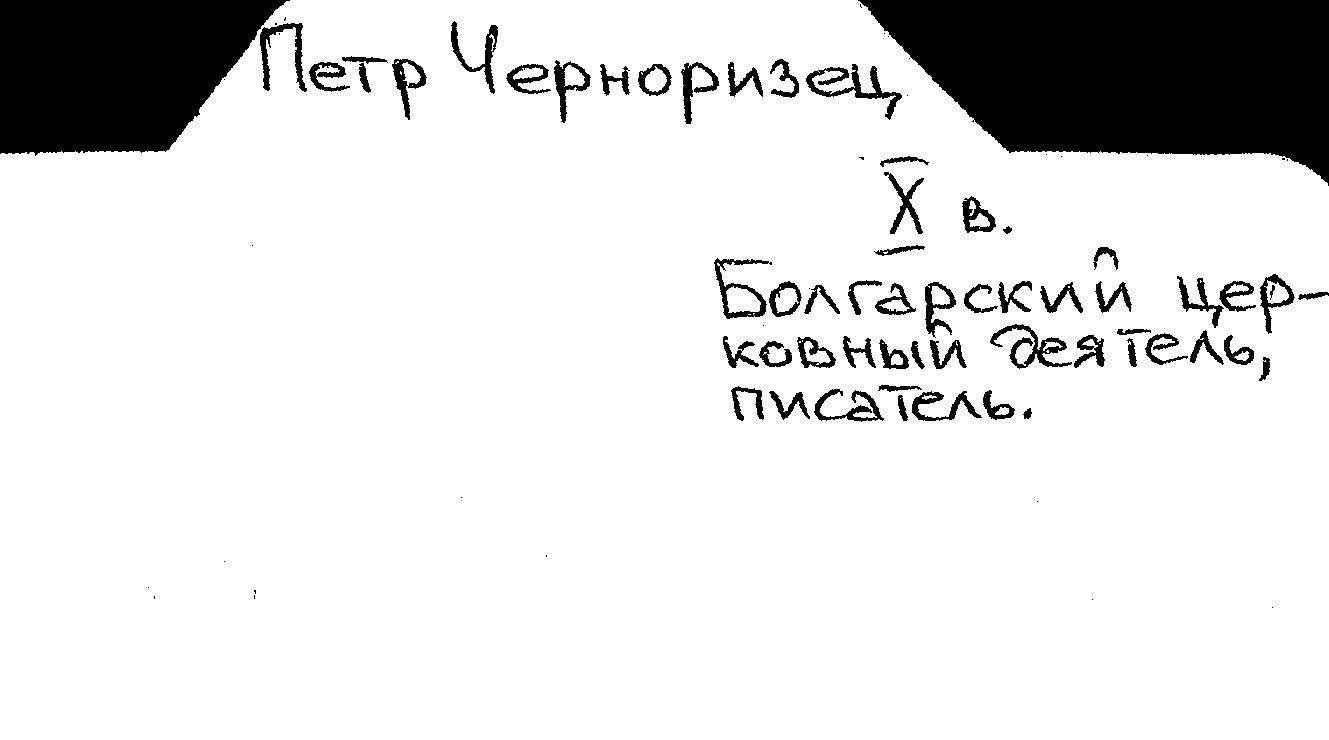 Петр Черноризец
X в.
Болгарский цер-
ковный деятель,
писатель.